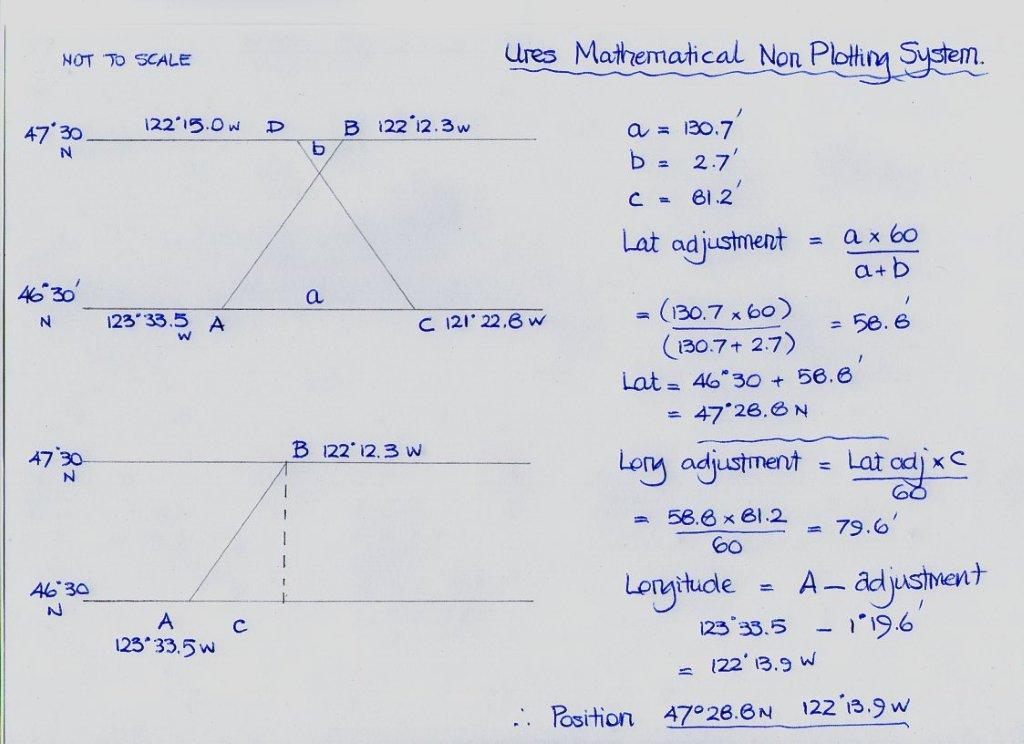 NOT TO SCALE
Ures Mathematical Non Plotting System.
47°30 N
122°15.0 W D B 122°12.3 W
b
46°30' N
a
123°33.5 W A C 121°22.8 W
47°30 N
B 122°12.3 W
46°30 N
A C
123°33.5 W
a = 130.7'
b = 2.7'
c = 81.2'
Lat adjustment = a x 60
a + b
= (130.7 x 60) = 58.8'
(130.7 + 2.7)
Lat = 46°30 + 58.8'
= 47°28.8 N
Long adjustment = Lat adj x C
60
= 58.8 x 81.2 = 79.6'
60
Longitude = A - adjustment
123°33.5 - 1°19.6'
= 122°13.9 W
∴ Position 47°28.8 N 122°13.9 W